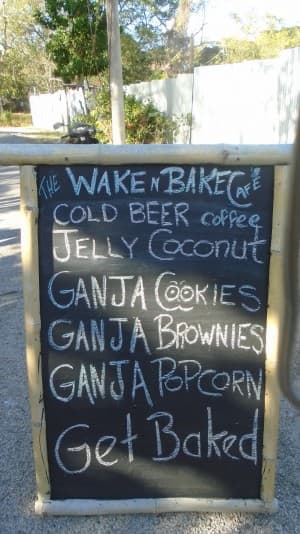 THE WAKE N BAKE CAFE
COLD BEER coffee
JELLY Coconut
GANJA COOKIES
GANJA BROWNIES
GANJA POPCORN
Get Baked